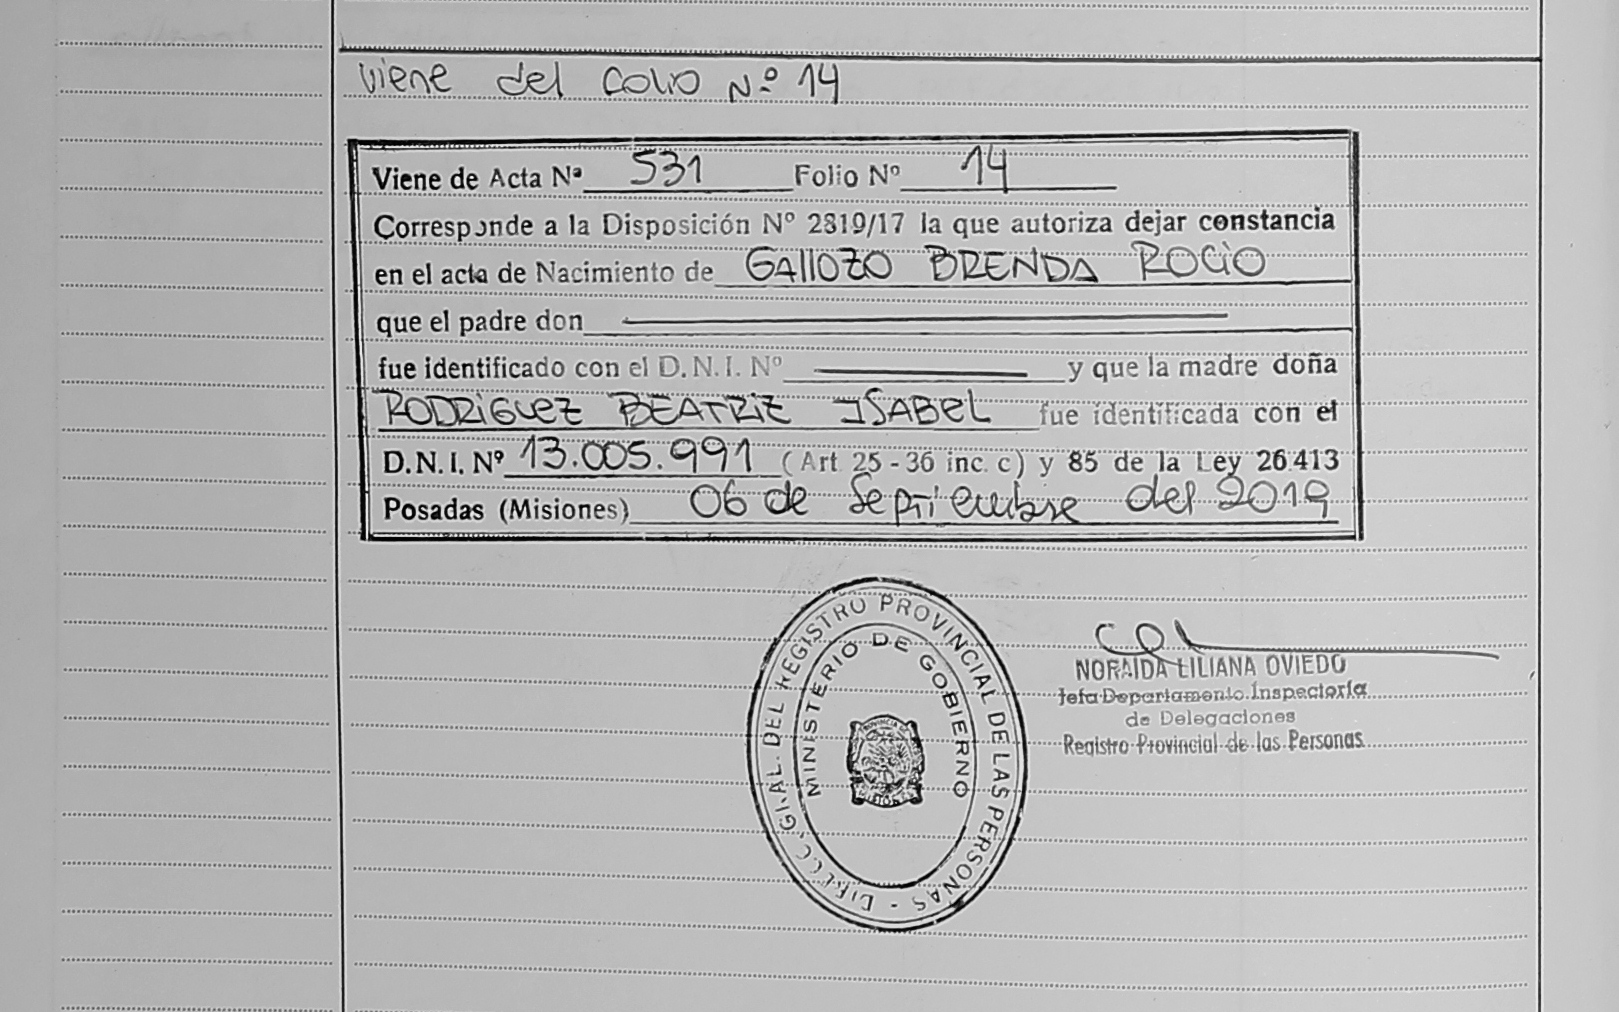 Viene del Folio N.º 14
Viene de Acta Nª 531 Folio Nº 14
Corresponde a la Disposición Nº 2819/17 la que autoriza dejar constancia
en el acta de Nacimiento de GALLOZO BRENDA ROCIO
que el padre don
fue identificado con el D.N.I. Nº y que la madre doña
RODRIGUEZ BEATRIZ ISABEL fue identificada con el
D.N.I. Nº 13.005.991 (Art 25 - 36 inc. c) y 85 de la Ley 26.413
Posadas (Misiones) 06 de Septiembre del 2019
GRAL. DEL REGISTRO PROVINCIAL DE LAS PERSONAS -
MINISTERIO DE GOBIERNO
NORAIDA LILIANA OVIEDO
Jefa Departamento Inspectoría
de Delegaciones
Registro Provincial de las Personas